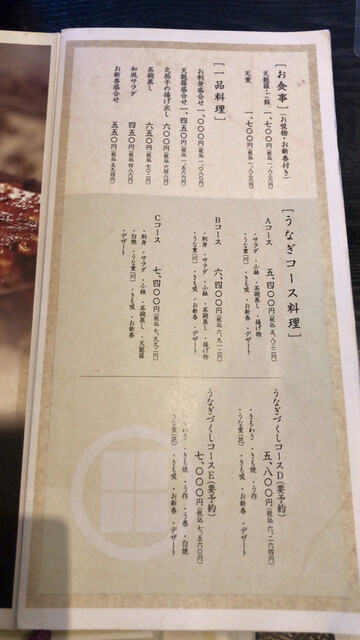 ［お食事］（お吸物・お新香付き）
天麩羅ご飯 一、七〇〇円（税込 一、八三六円）
天重 一、七〇〇円（税込 一、八三六円）
［一品料理］
お刺身盛合せ 一、〇〇〇円（税込 一、〇八〇円）
天麩羅盛合せ 一、四五〇円（税込 一、五六六円）
丸茄子の揚げ出し 六〇〇円（税込 六四八円）
茶碗蒸し 六五〇円（税込 七〇二円）
和風サラダ 四五〇円（税込 四八六円）
お新香盛合せ 五五〇円（税込 五九四円）
［うなぎコース料理］
Aコース 五、四〇〇円（税込 五、八三二円）
・サラダ ・小鉢 ・茶碗蒸し ・揚げ物
・うな重（竹） ・きも吸 ・お新香 ・デザート
Bコース 六、四〇〇円（税込 六、九一二円）
・刺身 ・サラダ ・小鉢 ・茶碗蒸し ・揚げ物
・うな重（竹） ・きも吸 ・お新香 ・デザート
Cコース 七、四〇〇円（税込 七、九九二円）
・刺身 ・サラダ ・小鉢 ・茶碗蒸し ・天麩羅
・白焼 ・うな重（竹） ・きも吸 ・お新香
・デザート
うなぎづくしコースD（要予約）
五、八〇〇円（税込 六、二六四円）
・きもわさ ・きも焼 ・う作
・うな重（花） ・きも吸 ・お新香 ・デザート
うなぎづくしコースE（要予約）
七、〇〇〇円（税込 七、五六〇円）
・きもわさ ・きも焼 ・う作 ・う巻 ・白焼
・うな重（花） ・きも吸 ・お新香 ・デザート